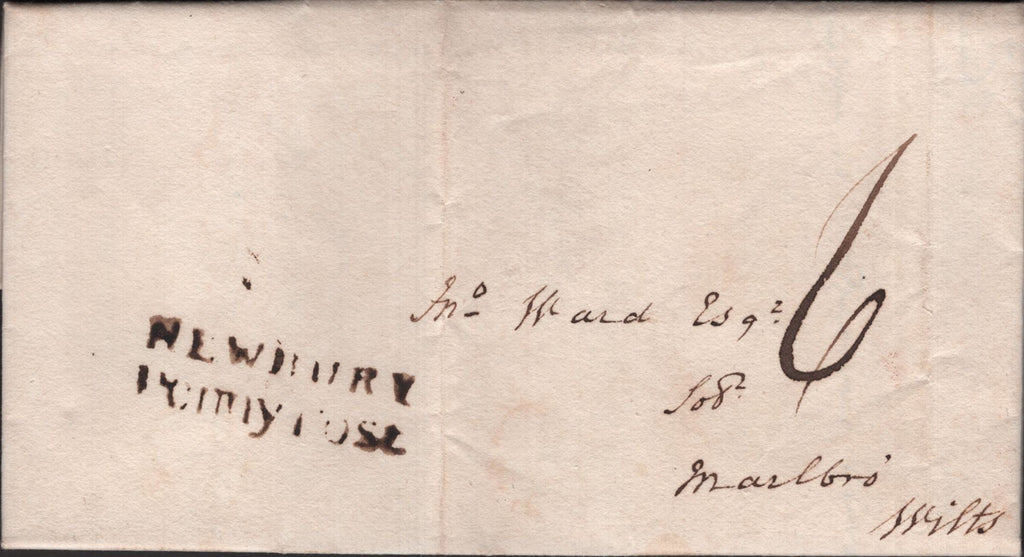 NEWBURY
Penny Post
Jno Ward Esqr
6
Solr
Marlbro'
Wilts